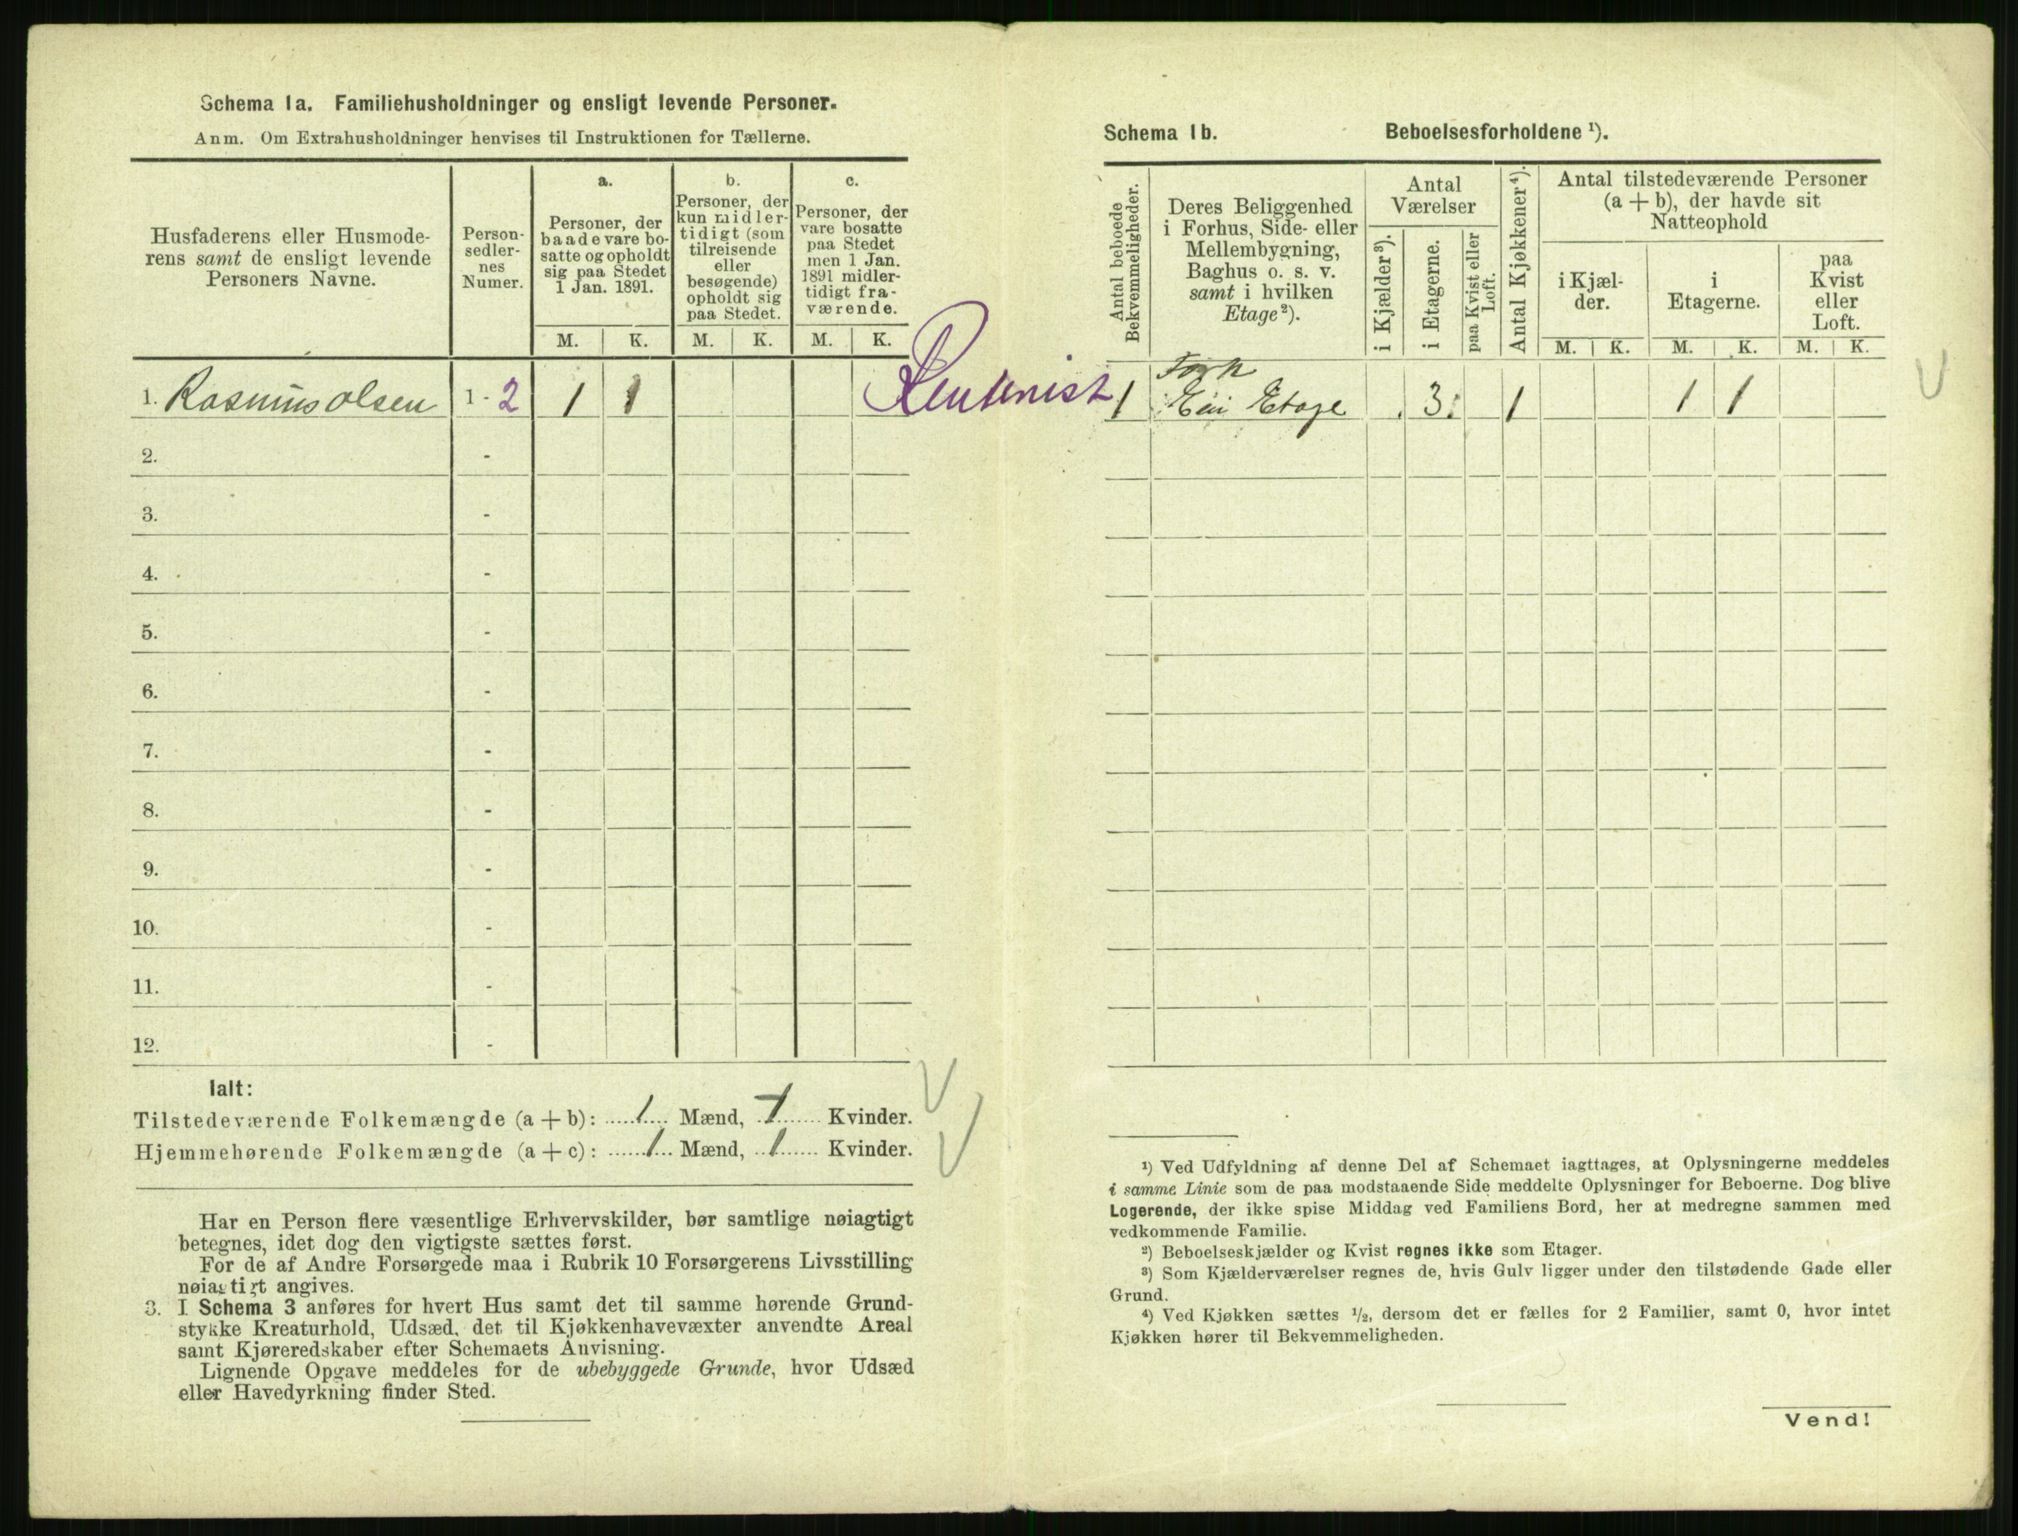 Schema 1a. Familiehusholdninger og ensligt levende Personer.
Anm. Om Extrahusholdninger henvises til Instruktionen for Tællerne.
Husfaderens eller Husmode-
rens samt de ensligt levende
Personers Navne.
Person-
sedler-
nes
Numer.
a.
Personer, der
baade vare bo-
satte og opholdt
sig paa Stedet
1 Jan. 1891.
b.
Personer, der
kun midler-
tidigt (som
tilreisende
eller
besøgende)
opholdt sig
paa Stedet.
c.
Personer, der
vare bosatte
paa Stedet
men 1 Jan.
1891 midler-
tidigt fra-
værende.
M. K. M. K. M. K.
1. Rasmus Olsen 1 - 2 1 1 Rentenist
2. -
3. -
4. -
5. -
6. -
7. -
8. -
9. -
10. -
11. -
12. -
Ialt:
Tilstedeværende Folkemængde (a + b): 1 Mænd, 1 Kvinder.
Hjemmehørende Folkemængde (a + c): 1 Mænd, 1 Kvinder.
Har en Person flere væsentlige Erhvervskilder, bør samtlige nøiagtigt
betegnes, idet dog den vigtigste sættes først.
For de af Andre Forsørgede maa i Rubrik 10 Forsørgerens Livsstilling
nøiagtigt angives.
3. I Schema 3 anføres for hvert Hus samt det til samme hørende Grund-
stykke Kreaturhold, Udsæd, det til Kjøkkenhavevæxter anvendte Areal
samt Kjøreredskaber efter Schemaets Anvisning.
Lignende Opgave meddeles for de ubebyggede Grunde, hvor Udsæd
eller Havedyrkning finder Sted.
Schema 1b. Beboelsesforholdene ¹).
Antal beboede
Bekvemmeligheder.
Deres Beliggenhed
i Forhus, Side- eller
Mellembygning,
Baghus o. s. v.
samt i hvilken
Etage²).
Antal
Værelser
i Kjælder³).
i Etagerne.
paa Kvist eller
Loft.
Antal Kjøkkener⁴).
Antal tilstedeværende Personer
(a + b), der havde sit
Natteophold
i Kjæl-
der.
i
Etagerne.
paa
Kvist
eller
Loft.
M. K. M. K. M. K.
1 Etage 3 1 1 1
¹) Ved Udfyldning af denne Del af Schemaet iagttages, at Oplysningerne meddeles
i samme Linie som de paa modstaaende Side meddelte Oplysninger for Beboerne. Dog blive
Logerende, der ikke spise Middag ved Familiens Bord, her at medregne sammen med
vedkommende Familie.
²) Beboelseskjælder og Kvist regnes ikke som Etager.
³) Som Kjælderværelser regnes de, hvis Gulv ligger under den tilstødende Gade eller
Grund.
⁴) Ved Kjøkken sættes ½, dersom det er fælles for 2 Familier, samt 0, hvor intet
Kjøkken hører til Bekvemmeligheden.
Vend!